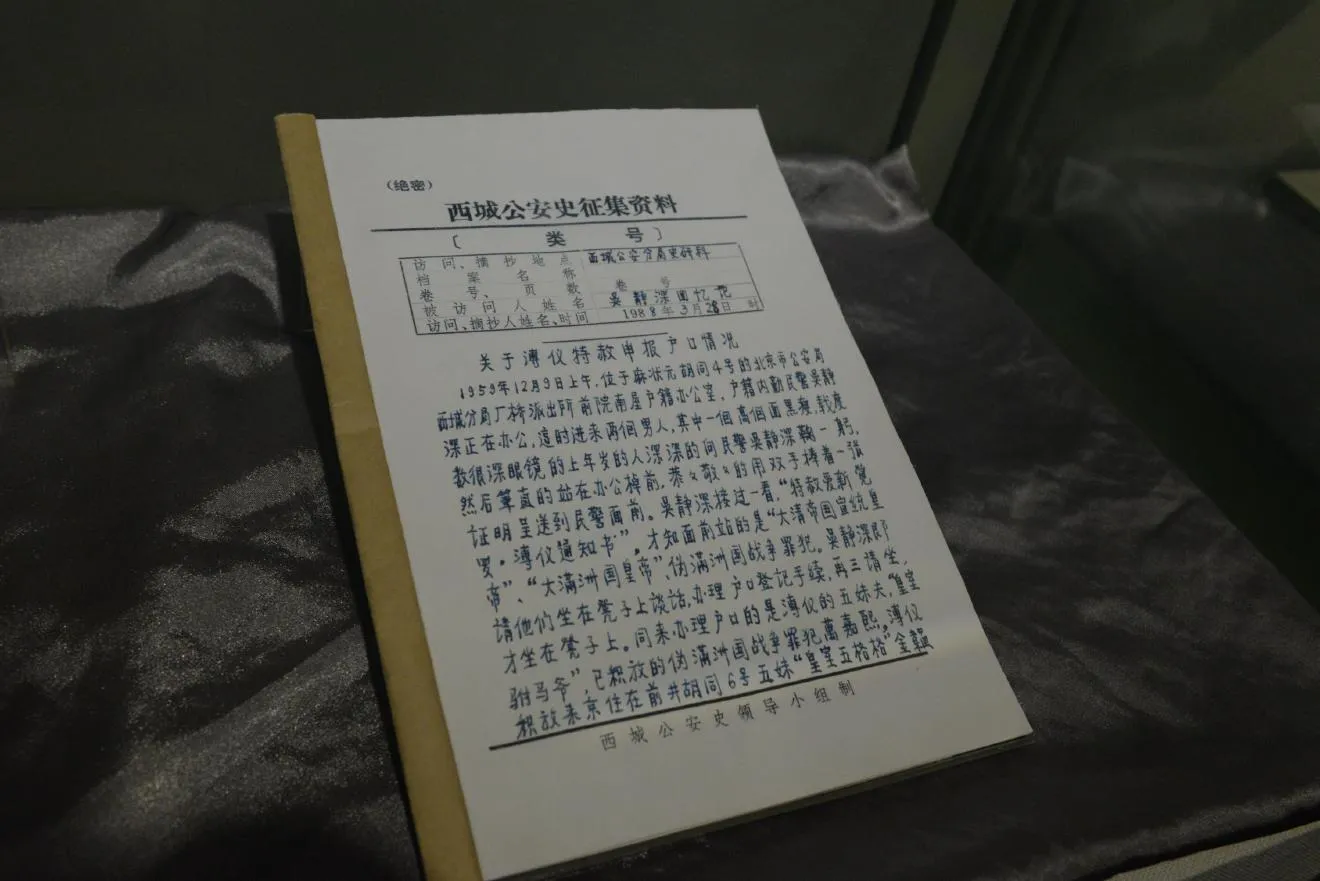 （绝密）
西城公安史征集资料
〔 类 号〕
访问、摘抄地点 西城公安分局史研料
档案名称
卷号、页数 卷号
被访问人姓名 吴静深回忆
访问、摘抄人姓名、时间 1988年3月28日 时
关于溥仪特赦申报户口情况
1959年12月9日上午，位于麻状元胡同4号的北京市公安局
西城分局厂桥派出所前院南屋户籍办公室，户籍内勤民警吴静
深正在办公，这时进来两个男人，其中一個高個面黑瘦，戴度
数很深眼镜的上年岁的人深深的向民警吴静深鞠一躬，
然后筆直的站在办公棹前，恭々敬々的用双手捧着一张
证明呈送到民警面前。吴静深接过一看，“特赦爱新觉
罗·溥仪通知书”，才知面前站的是“大清帝国宣统皇
帝”、“大滿洲国皇帝”、伪滿洲国战争罪犯。吴静深即
请他们坐在凳子上谈话，办理户口登记手续，再三请坐，
才坐在凳子上。同来办理户口的是溥仪的五妹夫，“皇室
驸马爷”，已积放的伪滿洲国战争罪犯萬嘉熙。溥仪
积放来京住在前井胡同6号五妹“皇室五格格”金韞
西城公安史领导小组制